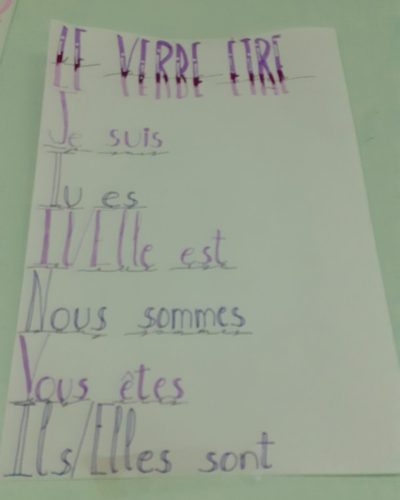 LE VERBE ETRE
Je suis
Tu es
Il/Elle est
Nous sommes
Vous êtes
Ils/Elles sont